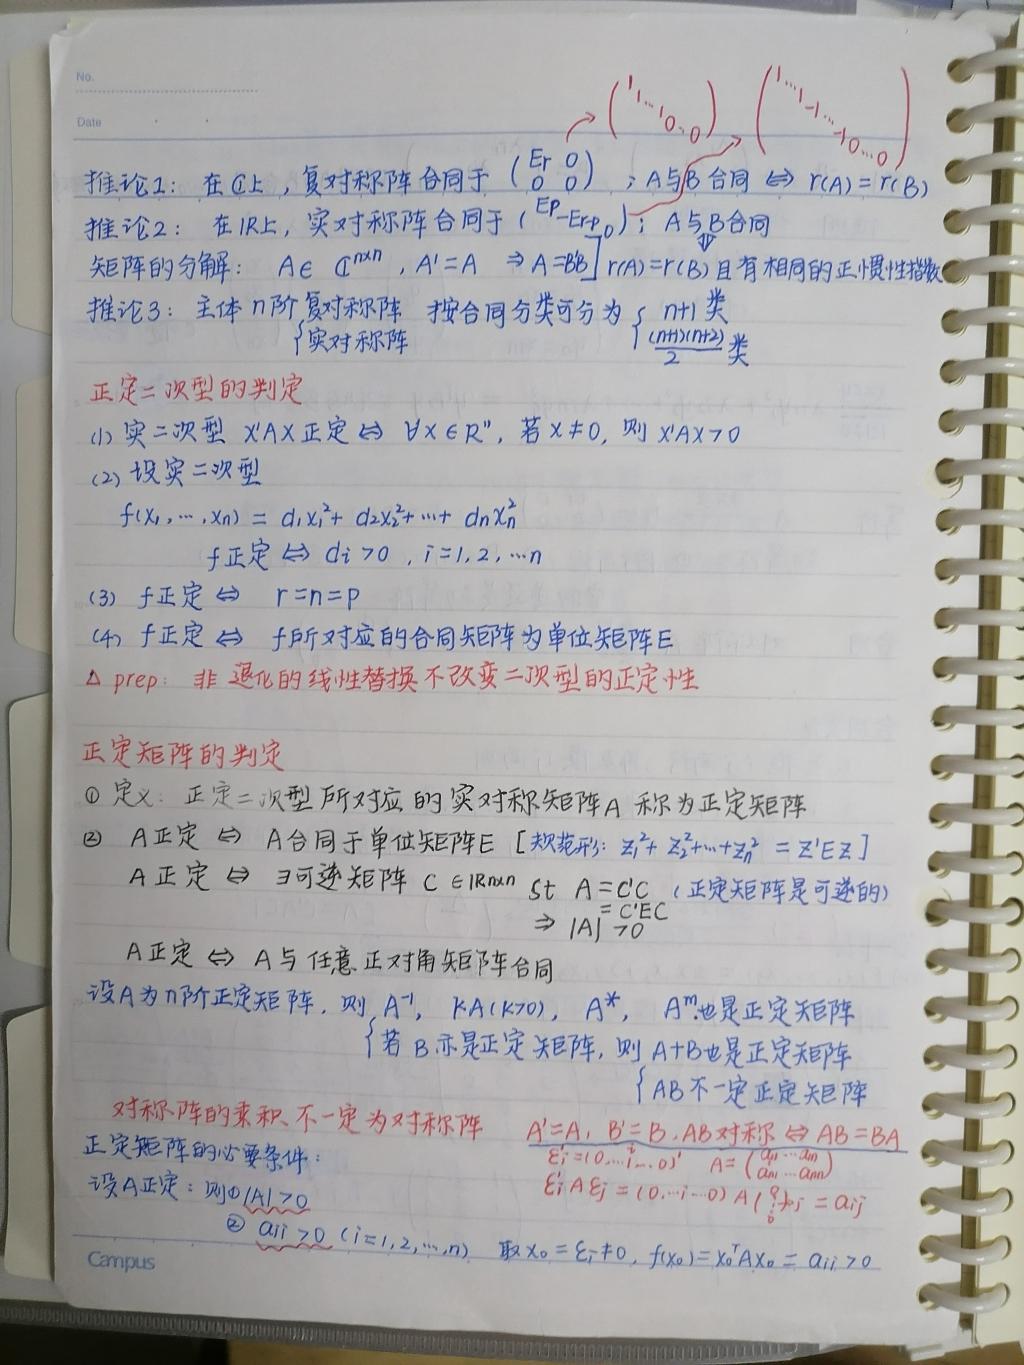 No.
Date
(1 1 ... 1 0 ... 0) (1 ... 1 -1 ... -1 0 ... 0)
推论1: 在ℂ上,复对称阵合同于 (Er 0 0 0) ; A与B合同 ⇔ r(A)=r(B)
推论2: 在ℝ上,实对称阵合同于 (Ep -Er-p 0) ; A与B合同
⇕
矩阵的分解: A∈ℂⁿˣⁿ, A'=A ⇒ A=B'B] r(A)=r(B)且有相同的正惯性指数
推论3: 主体n阶复对称阵 按合同分类可分为 { n+1类
{实对称阵 (n+1)(n+2)/2 类
正定二次型的判定
(1) 实二次型 X'AX正定 ⇔ ∀X∈Rⁿ, 若X≠0, 则X'AX>0
(2) 设实二次型
f(x₁,…,xn) = d₁x₁²+ d₂x₂²+…+ dnxn²
f正定 ⇔ di>0, i=1,2,…n
(3) f正定 ⇔ r=n=p
(4) f正定 ⇔ f所对应的合同矩阵为单位矩阵E
△ prep: 非退化的线性替换不改变二次型的正定性
正定矩阵的判定
① 定义: 正定二次型所对应的实对称矩阵A 称为正定矩阵
② A正定 ⇔ A合同于单位矩阵E [规范形: Z₁²+ Z₂²+…+Zn² = Z'EZ]
A正定 ⇔ ∃可逆矩阵 C∈ℝn×n st A=C'C (正定矩阵是可逆的)
= C'EC
⇒ |A|>0
A正定 ⇔ A与任意正对角矩阵合同
设A为n阶正定矩阵, 则 A⁻¹, kA(k>0), A*, Aᵐ也是正定矩阵
{若B亦是正定矩阵, 则A+B也是正定矩阵
{AB不一定正定矩阵
对称阵的乘积不一定为对称阵 A'=A, B'=B, AB对称 ⇔ AB=BA
正定矩阵的必要条件: εi'=(0,…1,…0)' A=(a11 … a1n an1 … ann)
设A正定: 则①|A|>0 εi'Aεj = (0,…1…0) A (0 1 0)j = aij
② aii>0 (i=1,2,…,n) 取x₀=εi≠0, f(x₀)=x₀ᵀAx₀= aii>0
Campus